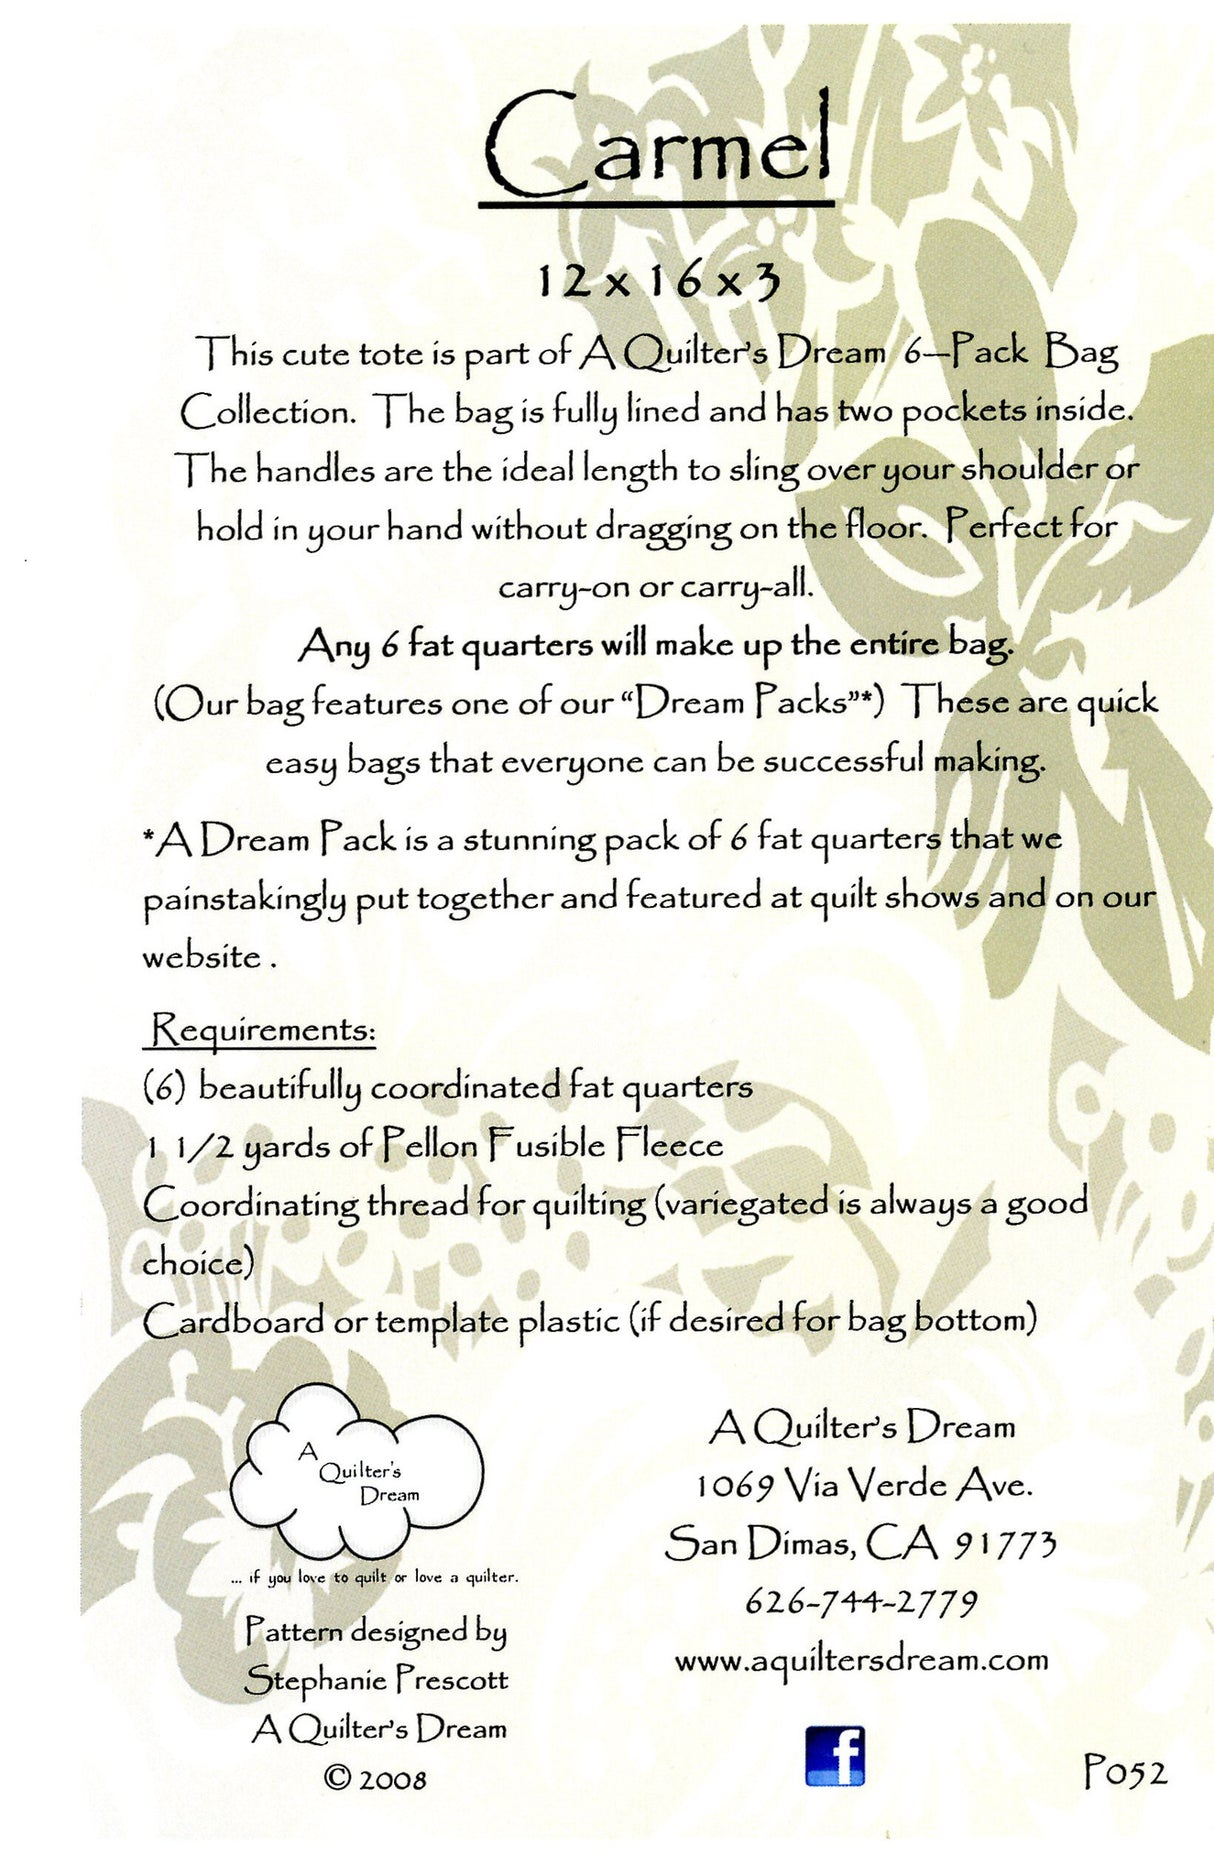 Carmel
12 x 16 x 3
This cute tote is part of A Quilter's Dream 6–Pack Bag
Collection. The bag is fully lined and has two pockets inside.
The handles are the ideal length to sling over your shoulder or
hold in your hand without dragging on the floor. Perfect for
carry-on or carry-all.
Any 6 fat quarters will make up the entire bag.
(Our bag features one of our “Dream Packs”*) These are quick
easy bags that everyone can be successful making.
*A Dream Pack is a stunning pack of 6 fat quarters that we
painstakingly put together and featured at quilt shows and on our
website .
Requirements:
(6) beautifully coordinated fat quarters
1 1/2 yards of Pellon Fusible Fleece
Coordinating thread for quilting (variegated is always a good
choice)
Cardboard or template plastic (if desired for bag bottom)
A
Quilter's
Dream
... if you love to quilt or love a quilter.
Pattern designed by
Stephanie Prescott
A Quilter's Dream
© 2008
A Quilter's Dream
1069 Via Verde Ave.
San Dimas, CA 91773
626-744-2779
www.aquiltersdream.com
f
P052